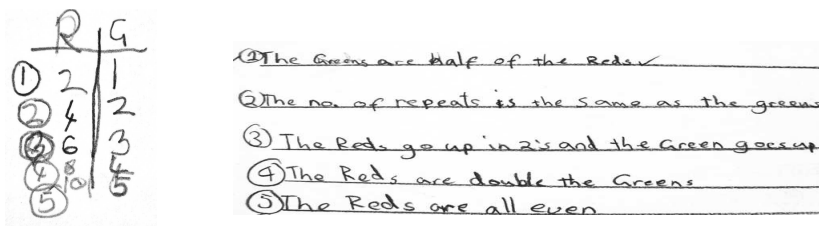 R G
① 2 1
② 4 2
③ 6 3
④ 8 4
⑤ 10 5
① The Greens are half of the Reds ✓
② The no. of repeats is the same as the greens
③ The Reds go up in 2's and the Green goes up
④ The Reds are double the Greens
⑤ The Reds are all even